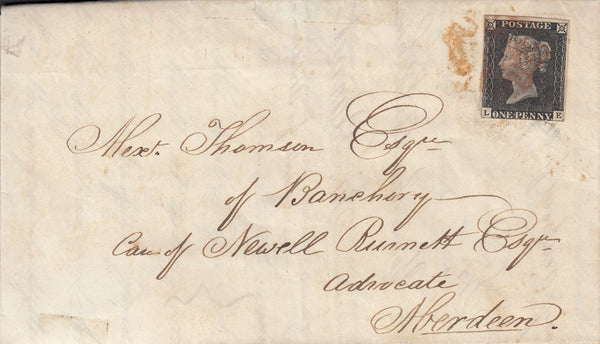 POSTAGE
L ONE PENNY E
Alexr. Thomson Esqre
of Banchory
Care of Newell Burnett Esqre
Advocate
Aberdeen.